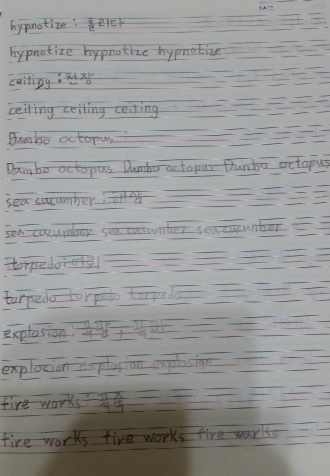 hypnotize : 홀리다
hypnotize hypnotize hypnotize
ceiling : 천장
ceiling ceiling ceiling
Dumbo octopus
Dumbo octopus Dumbo octopus Dumbo octopus
sea cucumber : 해삼
sea cucumber sea cucumber sea cucumber
torpedo : 어뢰
torpedo torpedo torpedo
explosion : 폭발 , 폭파
explosion explosion explosion
fire works : 폭죽
fire works fire works fire works